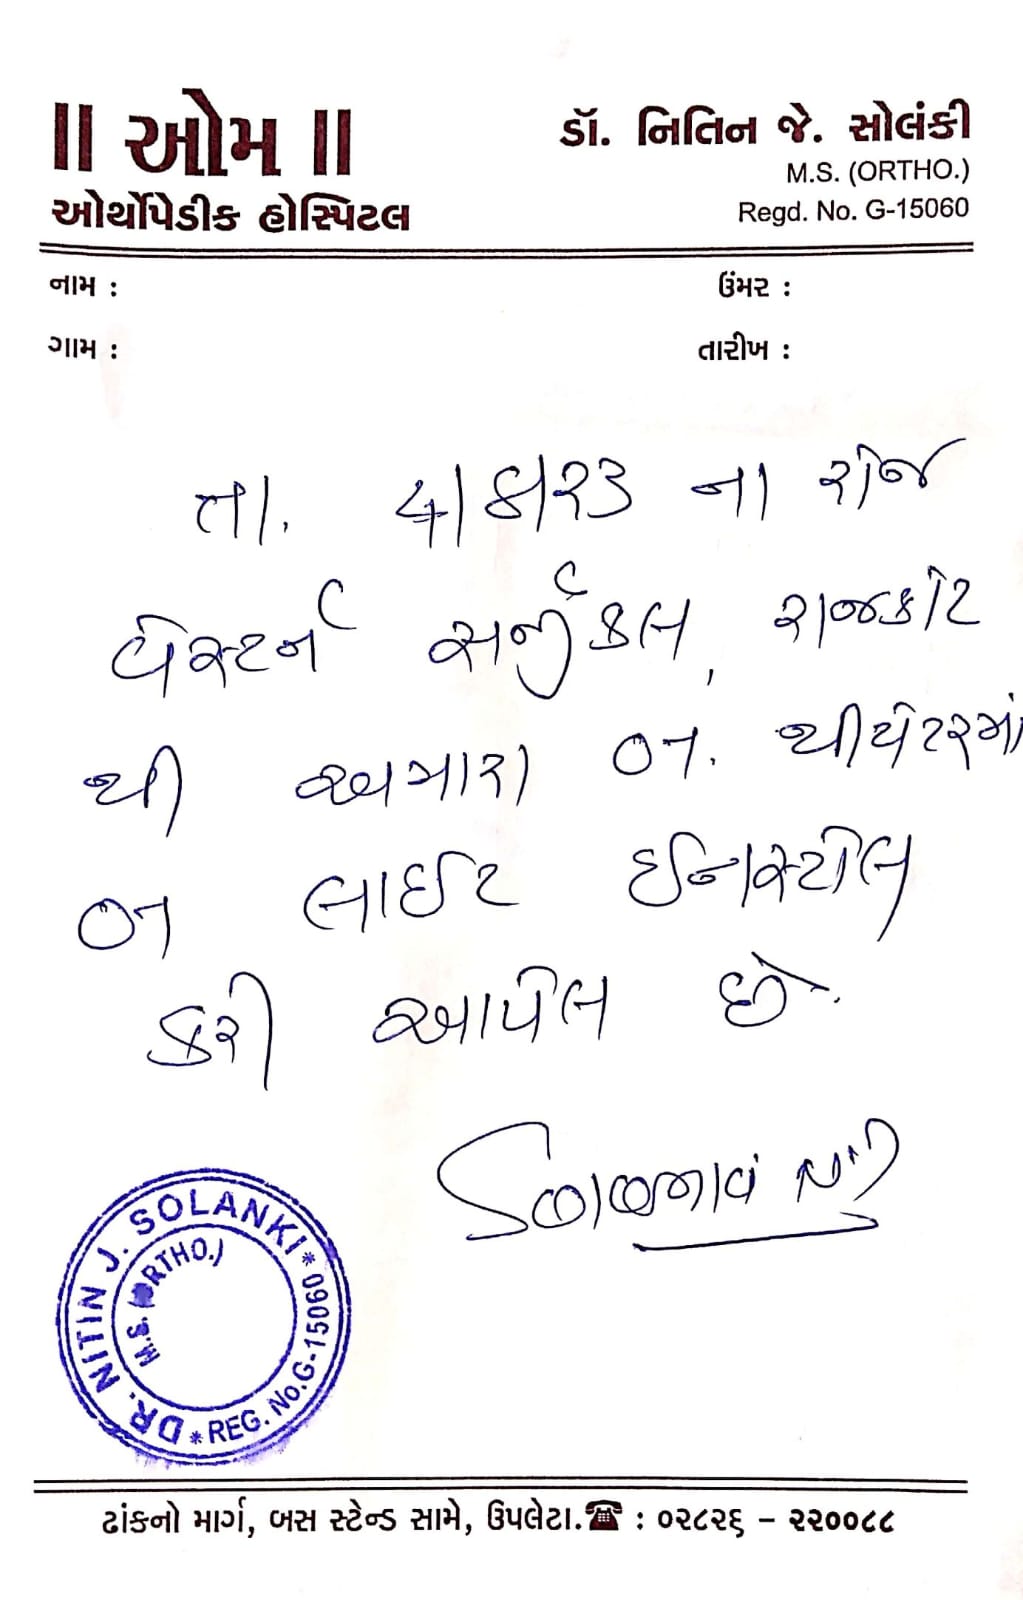 ॥ ઓમ ॥
ઓર્થોપેડીક હોસ્પિટલ
ડૉ. નિતિન જે. સોલંકી
M.S. (ORTHO.)
Regd. No. G-15060
નામ :
ઉંમર :
ગામ :
તારીખ :
તા. ૫/૪/૨૩ ના રોજ
વેસ્ટર્ન સર્જીકલ, રાજકોટ
થી અમારા ઓ.ટી. થીયેટરમાં
ઓ.ટી લાઈટ ઈન્સ્ટોલ
કરી આપેલ છે.
DR. NITIN J. SOLANKI
M.S. (ORTHO.)
* REG. No.G-15060 *
ઢાંકનો માર્ગ, બસ સ્ટેન્ડ સામે, ઉપલેટા.☎ : ૦૨૮૨૬ - ૨૨૦૦૮૮